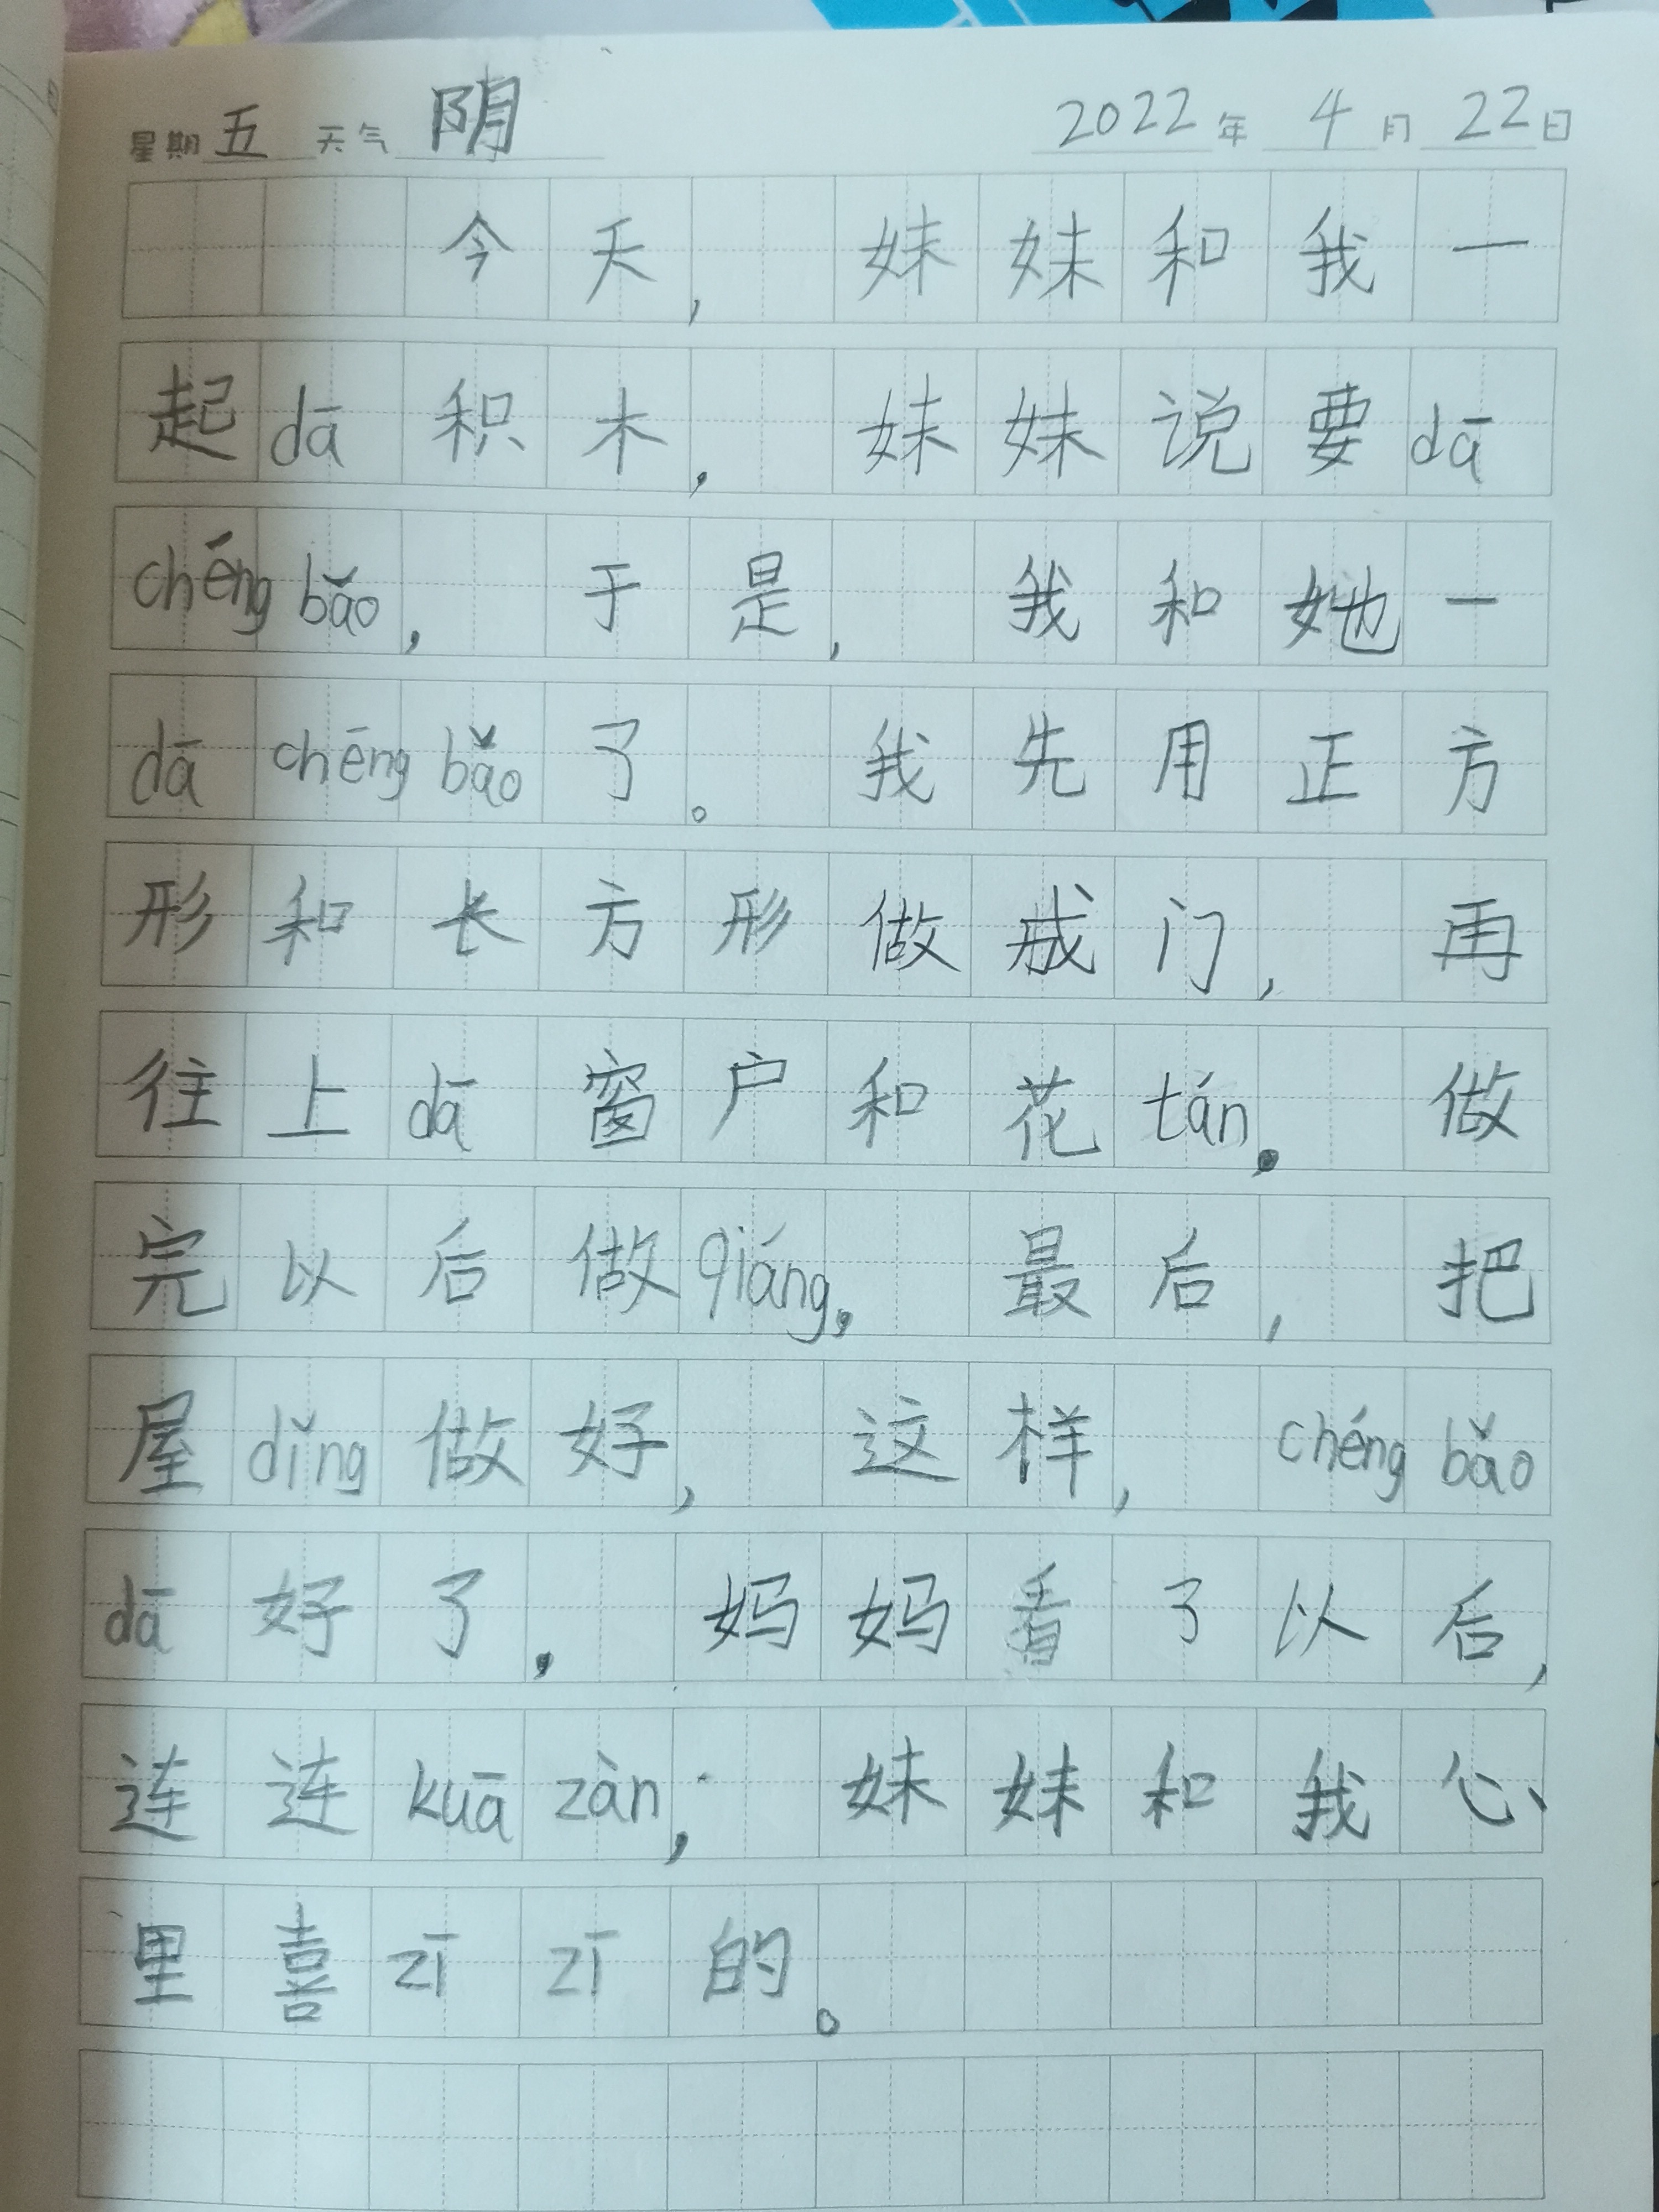 星期五 天气 阴 2022年 4月 22日
今天，妹妹和我一
起dā积木，妹妹说要dā
chéng bǎo，于是，我和她一
dā chēng bǎo了。我先用正方
形和长方形做成门，再
往上dā窗户和花tán。做
完以后做qiáng，最后，把
屋dǐng做好，这样，chéng bǎo
dā好了，妈妈看了以后，
连连kuā zàn，妹妹和我心
里喜zī zī的。